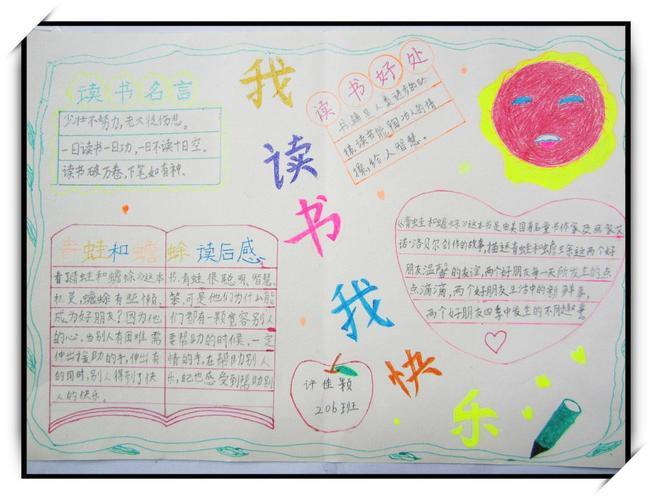 读书名言
少壮不努力,老大徒伤悲。
一日读书一日功,一日不读十日空。
读书破万卷,下笔如有神。
我
读
书
我
快
乐
读书好处
书籍是人类进步的阶
梯,读书能陶冶人的情
操,给人智慧。
青蛙和蟾蜍 读后感
青蛙和蟾蜍》这本
书,青蛙很聪明、智慧
蟾蜍有些懒
可是他们为什么能
成为好朋友?因为他
们都有一颗宽容别人
的心,当别人有困难需
要帮助的时候,一定
伸出援助的手,伸出有
情的手,在帮助别人
的同时,别人得到了快
乐,自己也感受到帮助别
人的快乐。
《青蛙和蟾蜍》这本书是由美国著名童书作家
洛贝尔创作的故事,描述青蛙和蟾蜍这两个好
朋友温馨的友谊,两个好朋友每一天所发生的点
点滴滴,两个好朋友生活中的新鲜事,
两个好朋友四季中发生的不同趣事
许佳颖
206班